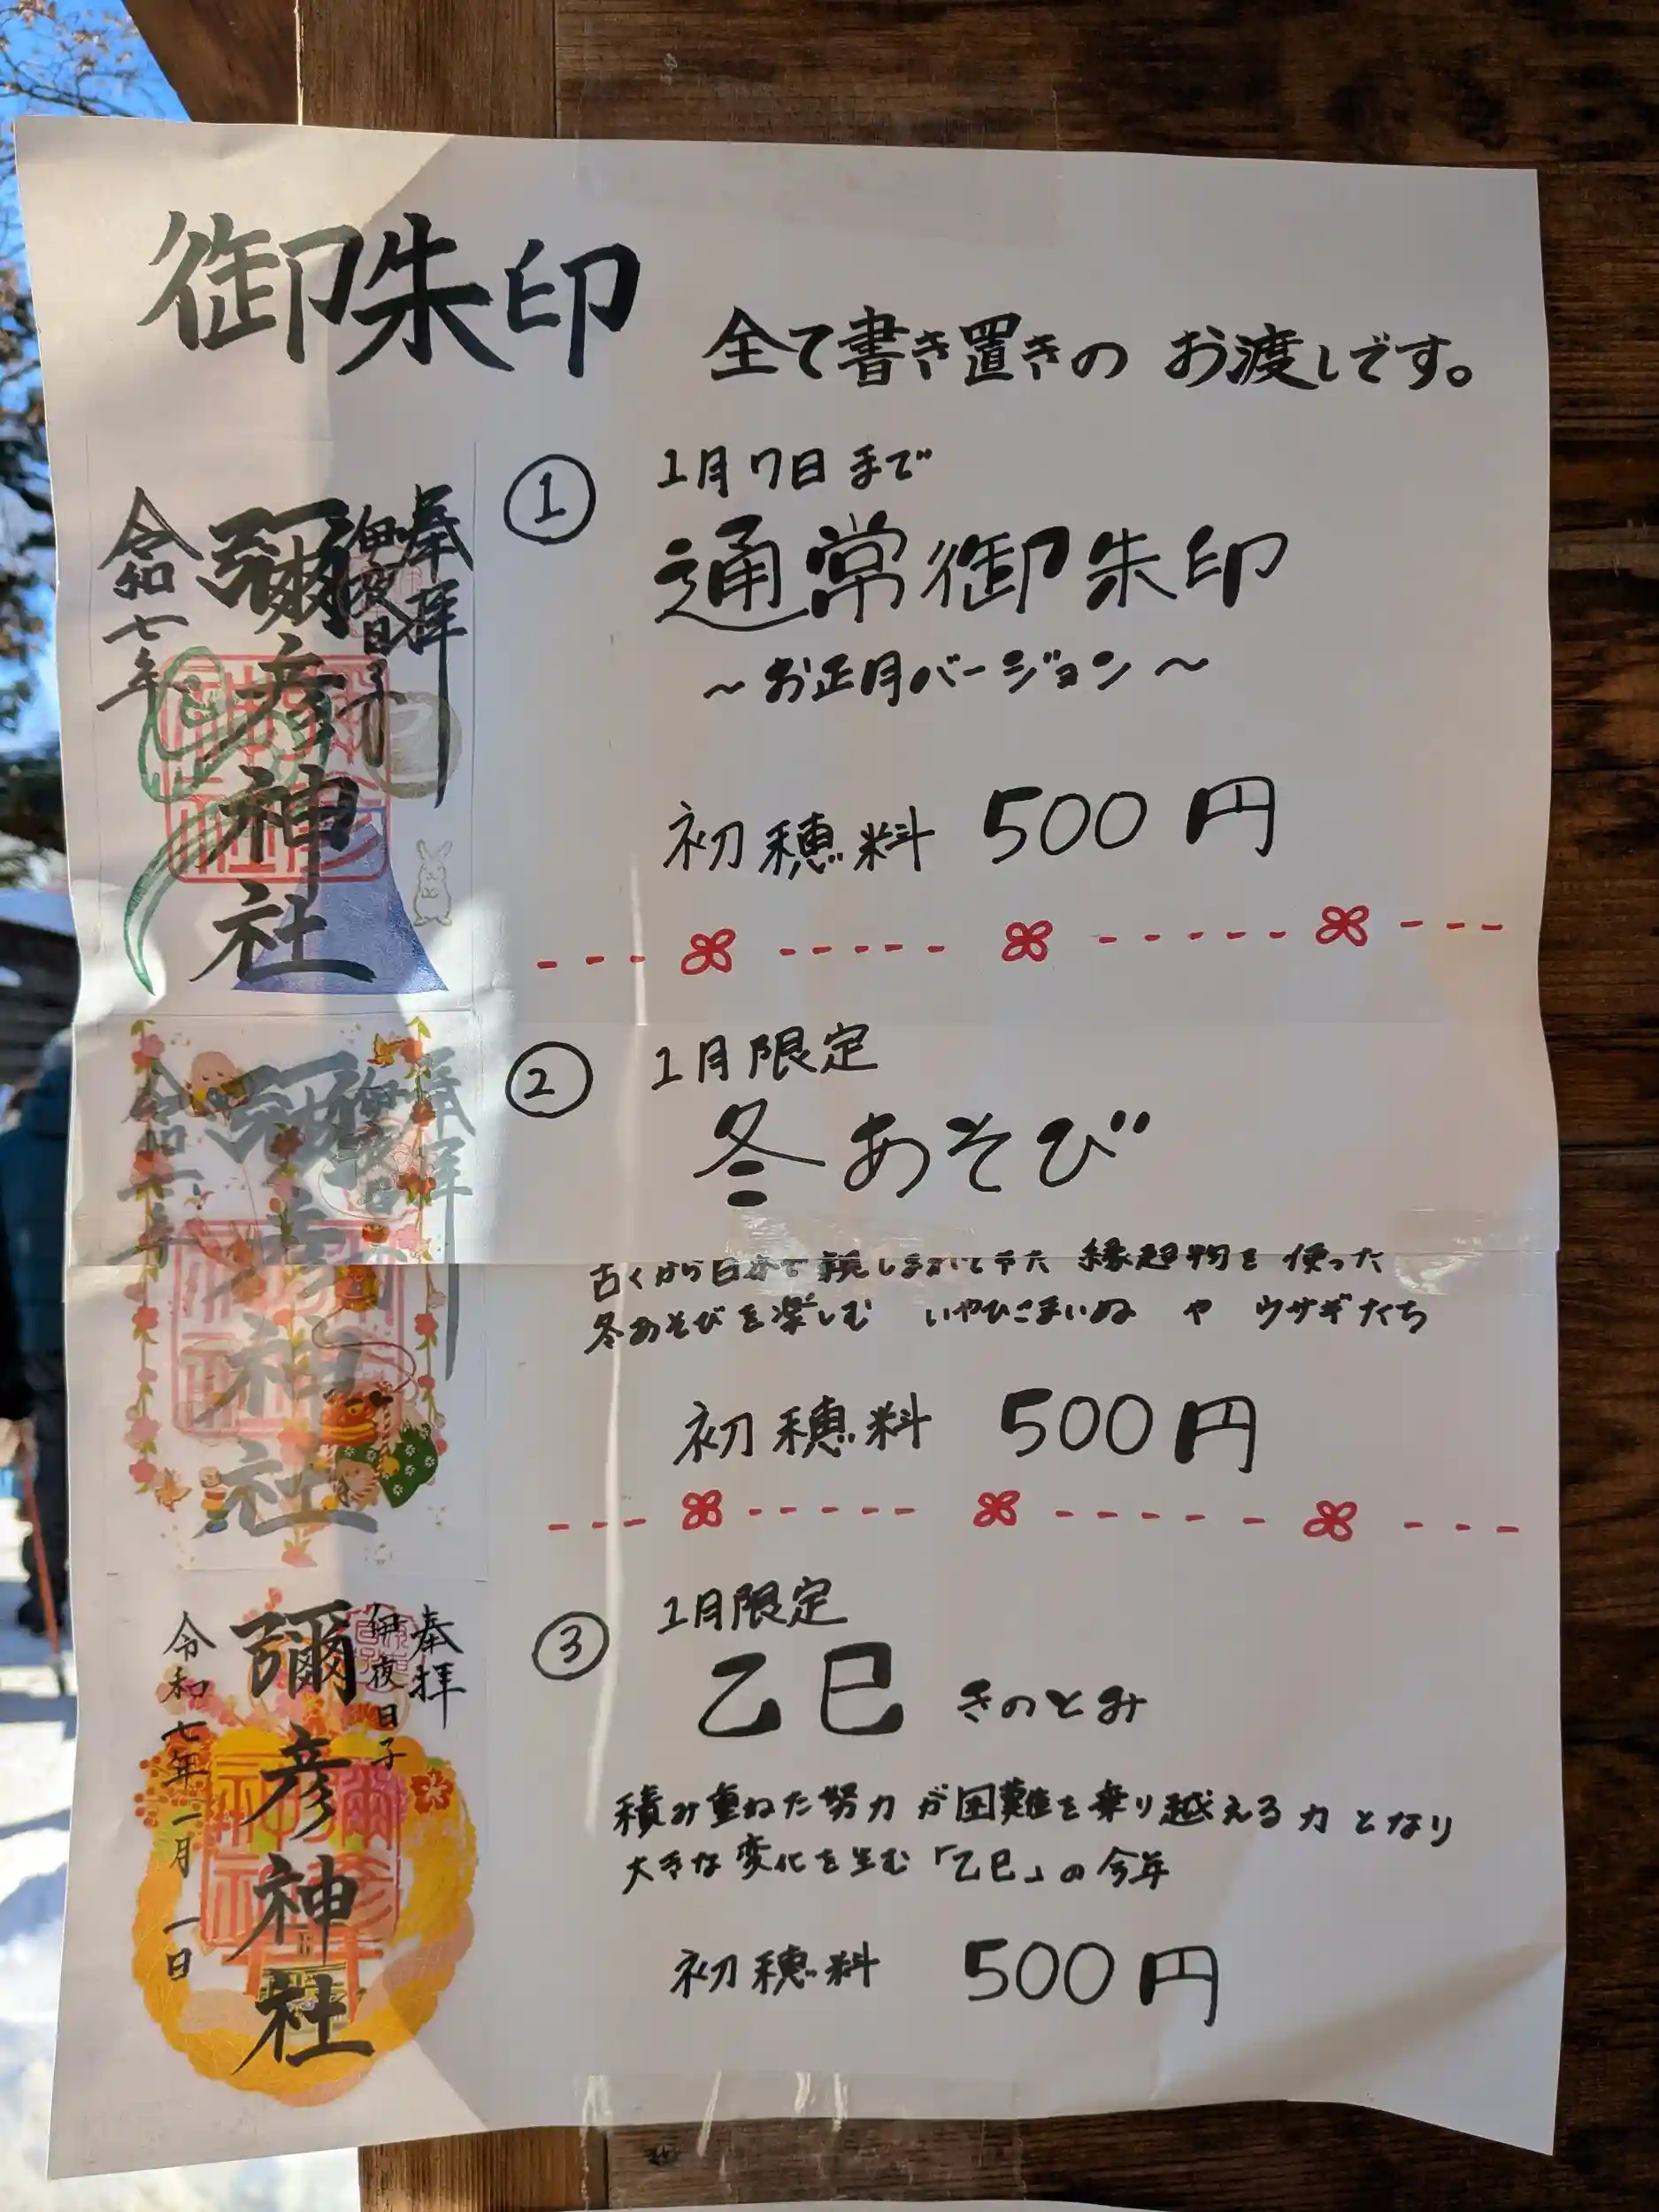 御朱印
全て書き置きの お渡しです。
奉拝
伊夜日子
彌彦神社
令和七年
① 1月7日まで
通常御朱印
～お正月バージョン～
初穂料 500円
奉拝
伊夜日子
彌彦神社
令和七年
② 1月限定
冬あそび
古くから日本で親しまれてきた 縁起物を 使った
冬あそびを楽しむ いやひこまいぬ や ウサギたち
初穂料 500円
奉拝
伊夜日子
彌彦神社
令和七年一月一日
③ 1月限定
乙巳 きのとみ
積み重ねた努力が困難を乗り越える力となり
大きな変化を生む「乙巳」の今年
初穂料 500円